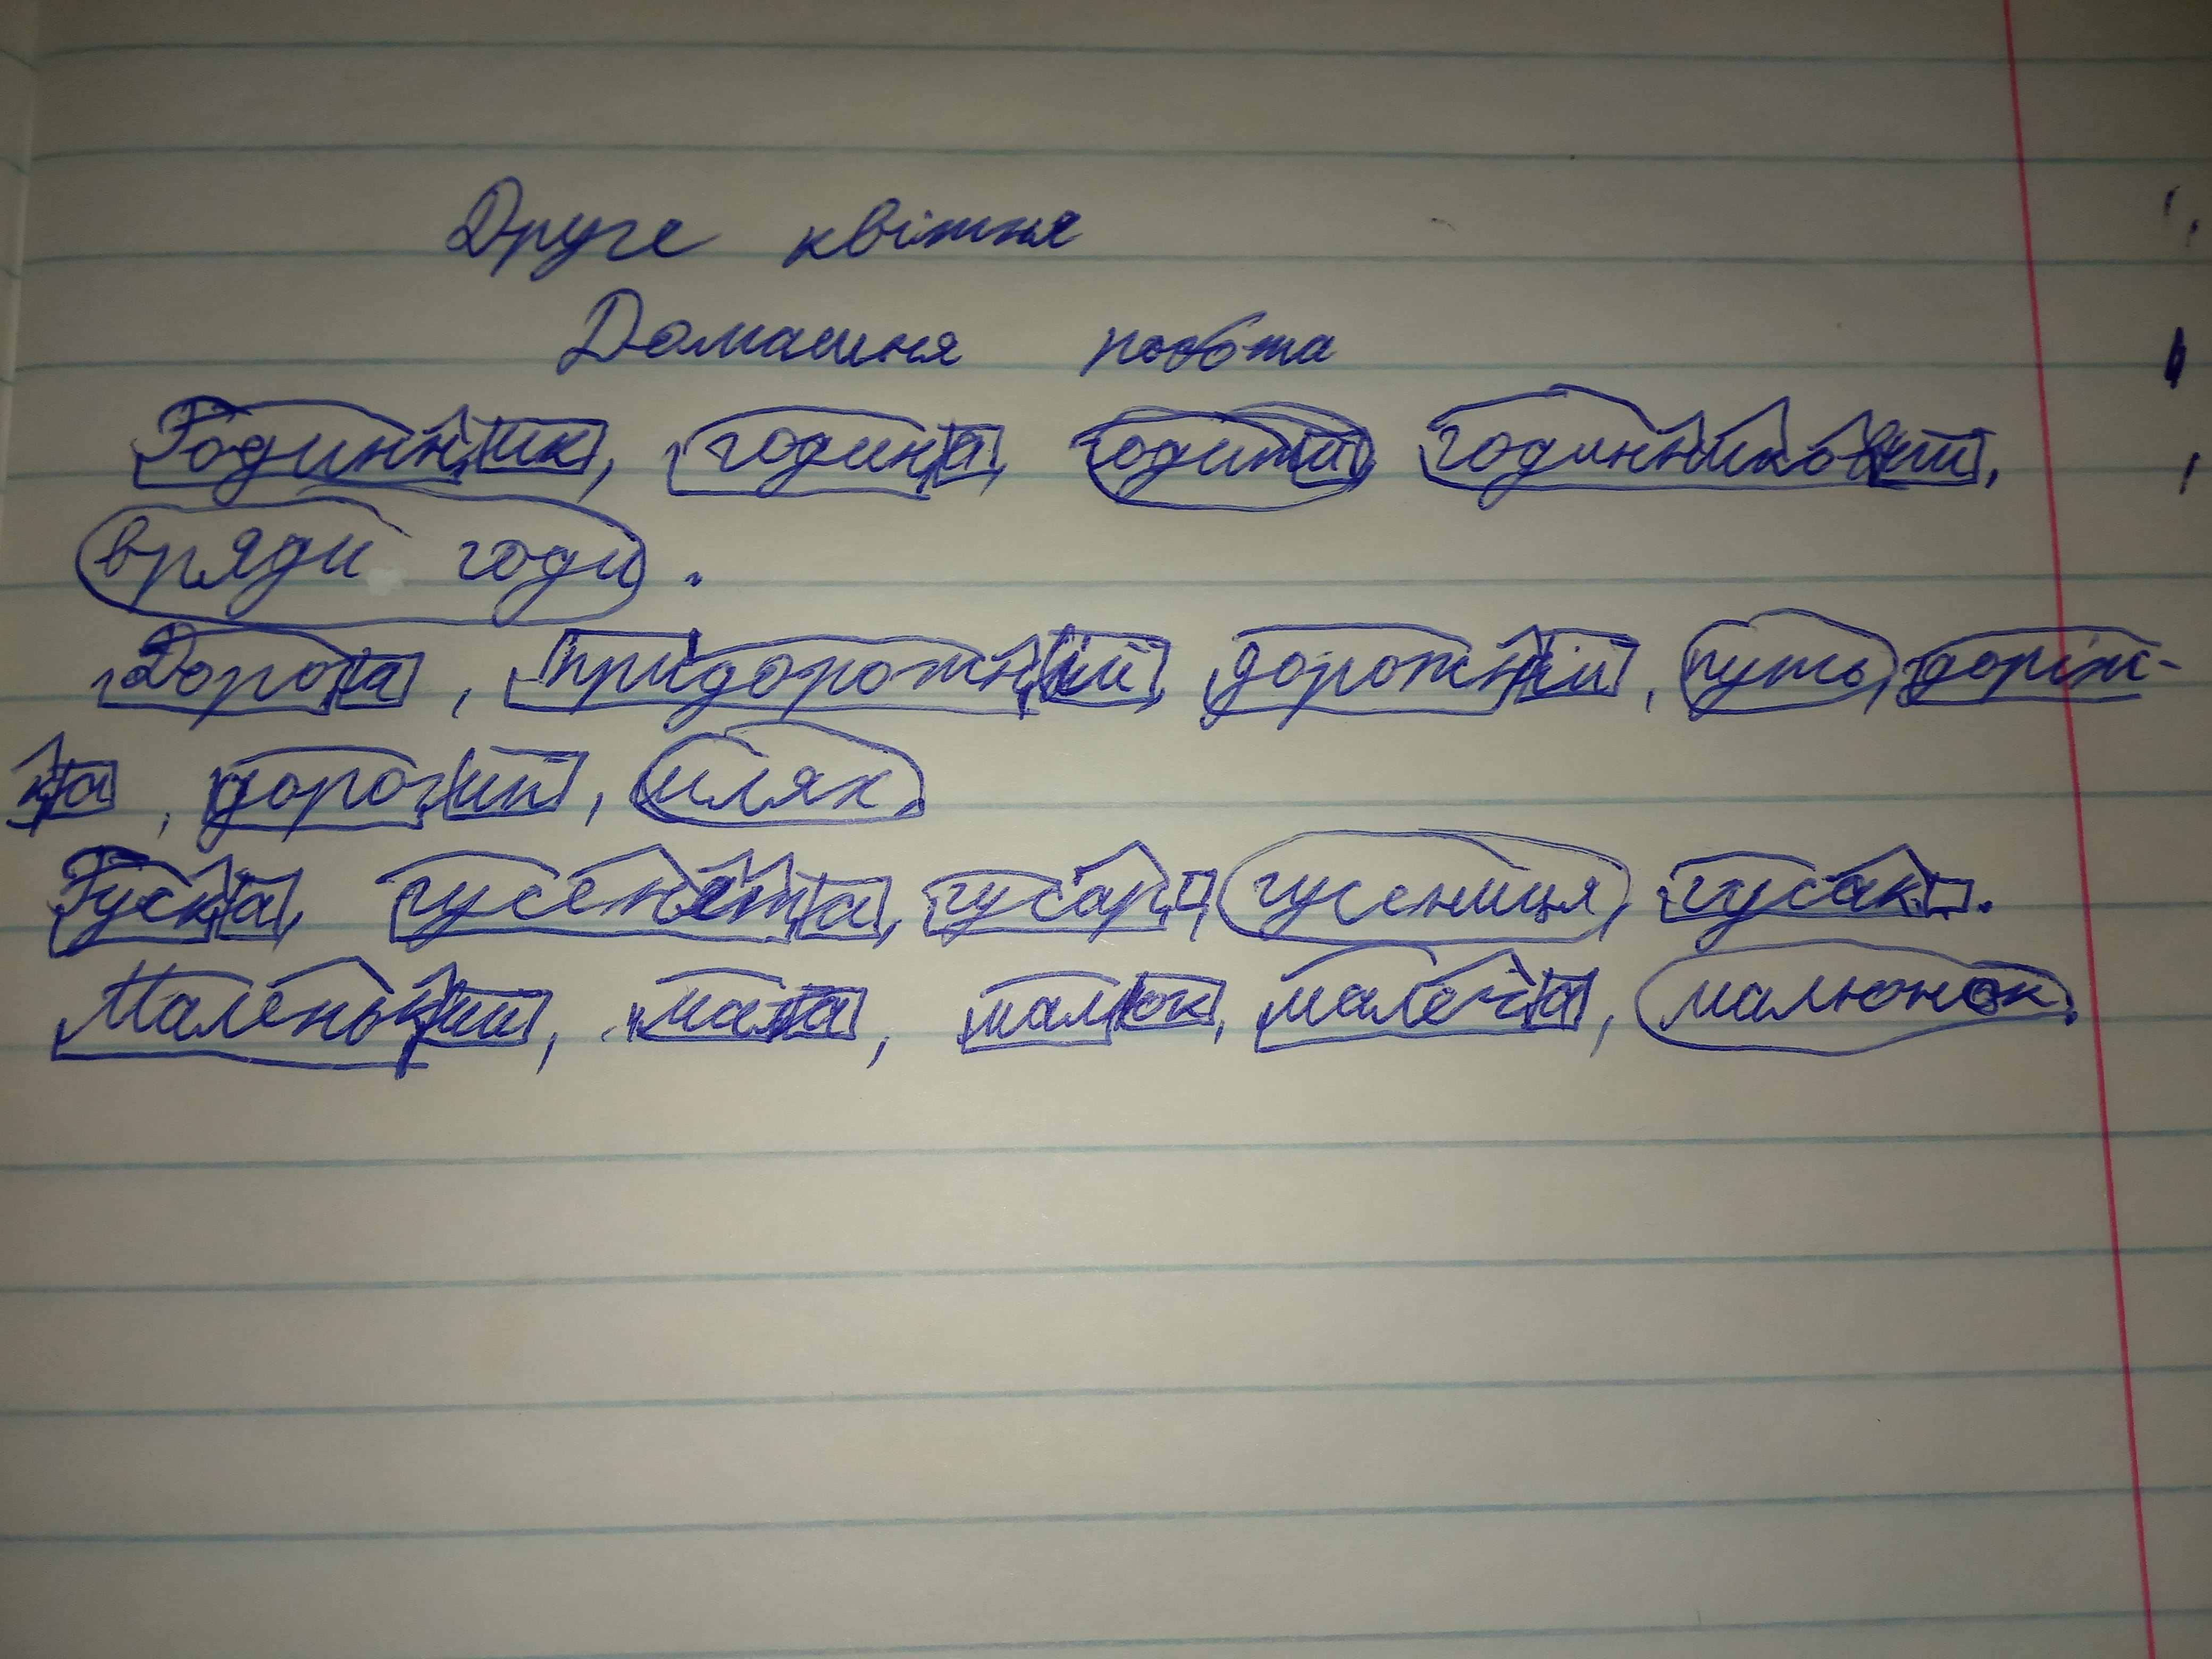 Друге квітня
Домашня робота
Годинник, година, годити, годинниковий,
вряди годи.
Дорога, придорожній, дорожній, путь, доріж-
ка, дорогий, шлях.
Гуска, гусенята, гусар, гусениця, гусак.
Маленький, мала, малюк, малеча, малюнок.